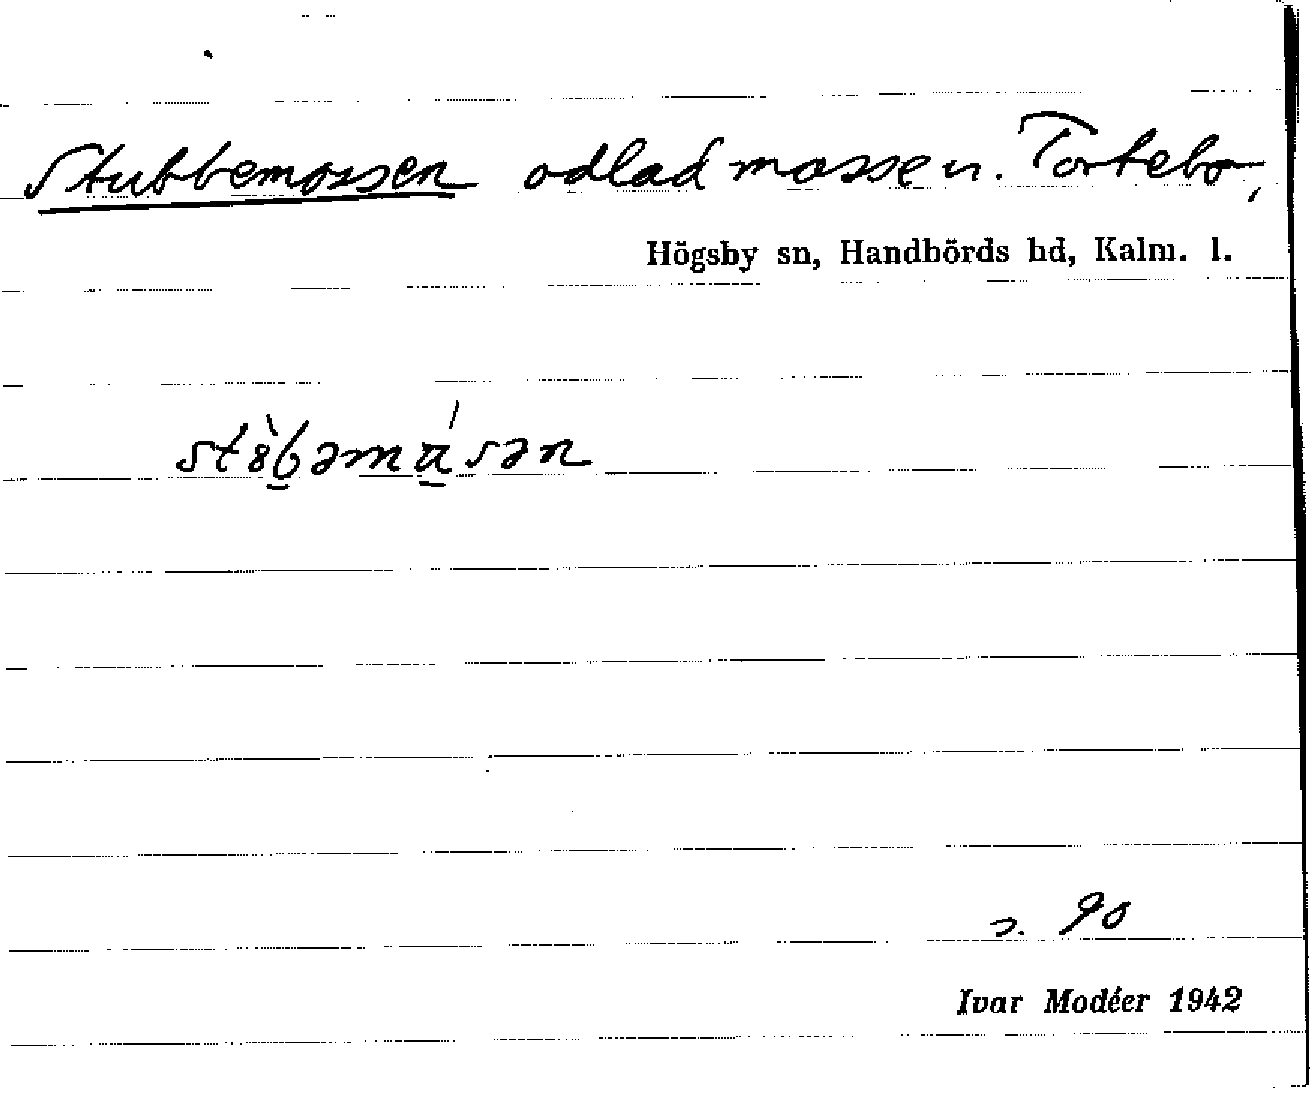 Stubbemossen odlad mosse n. Tortebo,
Högsby sn, Handbörds hd, Kalm. l.
s. 90
Ivar Modéer 1942